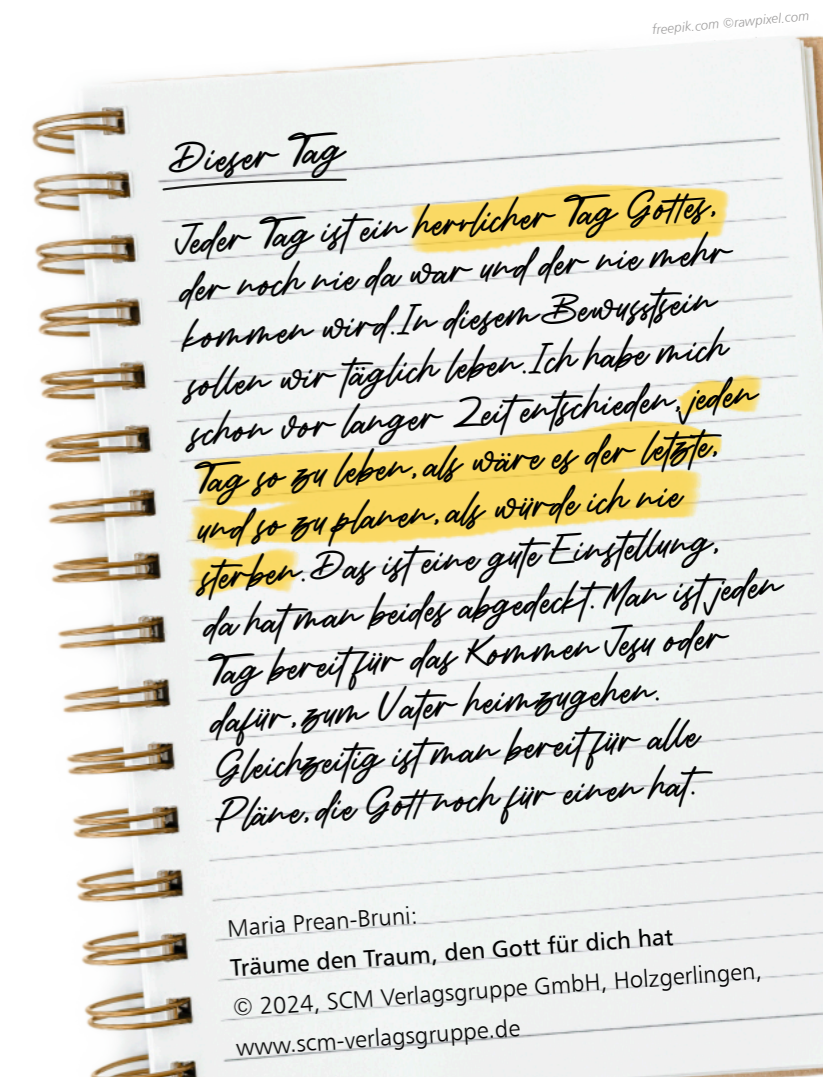 freepik.com ©rawpixel.com
Dieser Tag
Jeder Tag ist ein herrlicher Tag Gottes,
der noch nie da war und der nie mehr
kommen wird. In diesem Bewusstsein
sollen wir täglich leben. Ich habe mich
schon vor langer Zeit entschieden, jeden
Tag so zu leben, als wäre es der letzte,
und so zu planen, als würde ich nie
sterben. Das ist eine gute Einstellung,
da hat man beides abgedeckt. Man ist jeden
Tag bereit für das Kommen Jesu oder
dafür, zum Vater heimzugehen.
Gleichzeitig ist man bereit für alle
Pläne, die Gott noch für einen hat.
Maria Prean-Bruni:
Träume den Traum, den Gott für dich hat
© 2024, SCM Verlagsgruppe GmbH, Holzgerlingen,
www.scm-verlagsgruppe.de